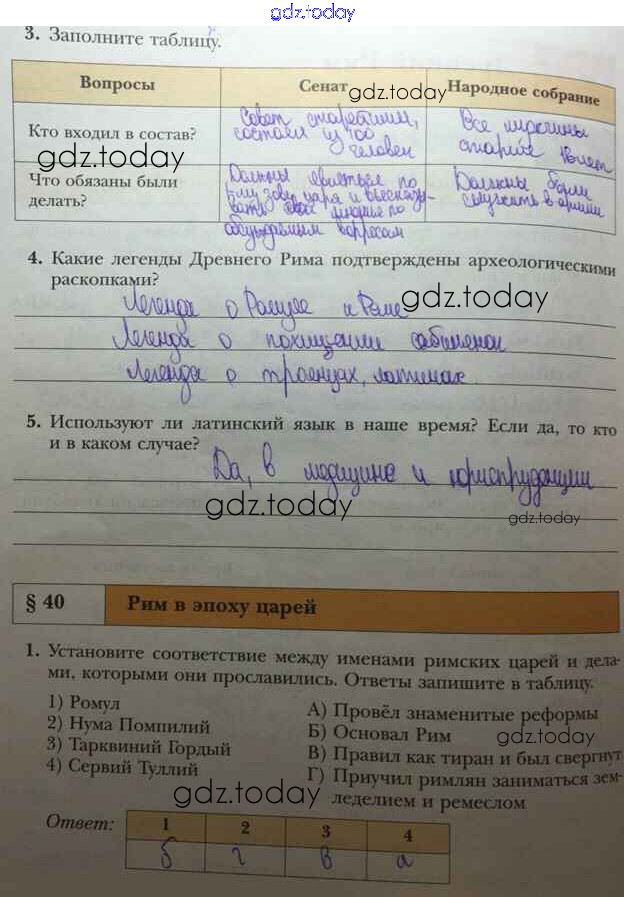 gdz.today
3. Заполните таблицу.
Вопросы Сенат Народное собрание
gdz.today
Кто входил в состав?
Совет старейшин,
состоял из 100
человек
Все мужчины
старше
gdz.today
Что обязаны были
делать?
Должны явиться по
зову царя и высказы-
вать своё мнение по
обсуждаемым вопросам
Должны были
служить в армии
4. Какие легенды Древнего Рима подтверждены археологическими
раскопками?
gdz.today
Легенда о Ромуле и Реме
Легенда о похищении сабинянок
Легенда о троянцах, латинах
5. Используют ли латинский язык в наше время? Если да, то кто
и в каком случае?
Да, в медицине и юриспруденции
gdz.today
gdz.today
§ 40 Рим в эпоху царей
1. Установите соответствие между именами римских царей и дела-
ми, которыми они прославились. Ответы запишите в таблицу.
1) Ромул
2) Нума Помпилий
3) Тарквиний Гордый
4) Сервий Туллий
А) Провёл знаменитые реформы
Б) Основал Рим
В) Правил как тиран и был свергнут
Г) Приучил римлян заниматься зем-
леделием и ремеслом
gdz.today
gdz.today
Ответ: 1 2 3 4
б г в а